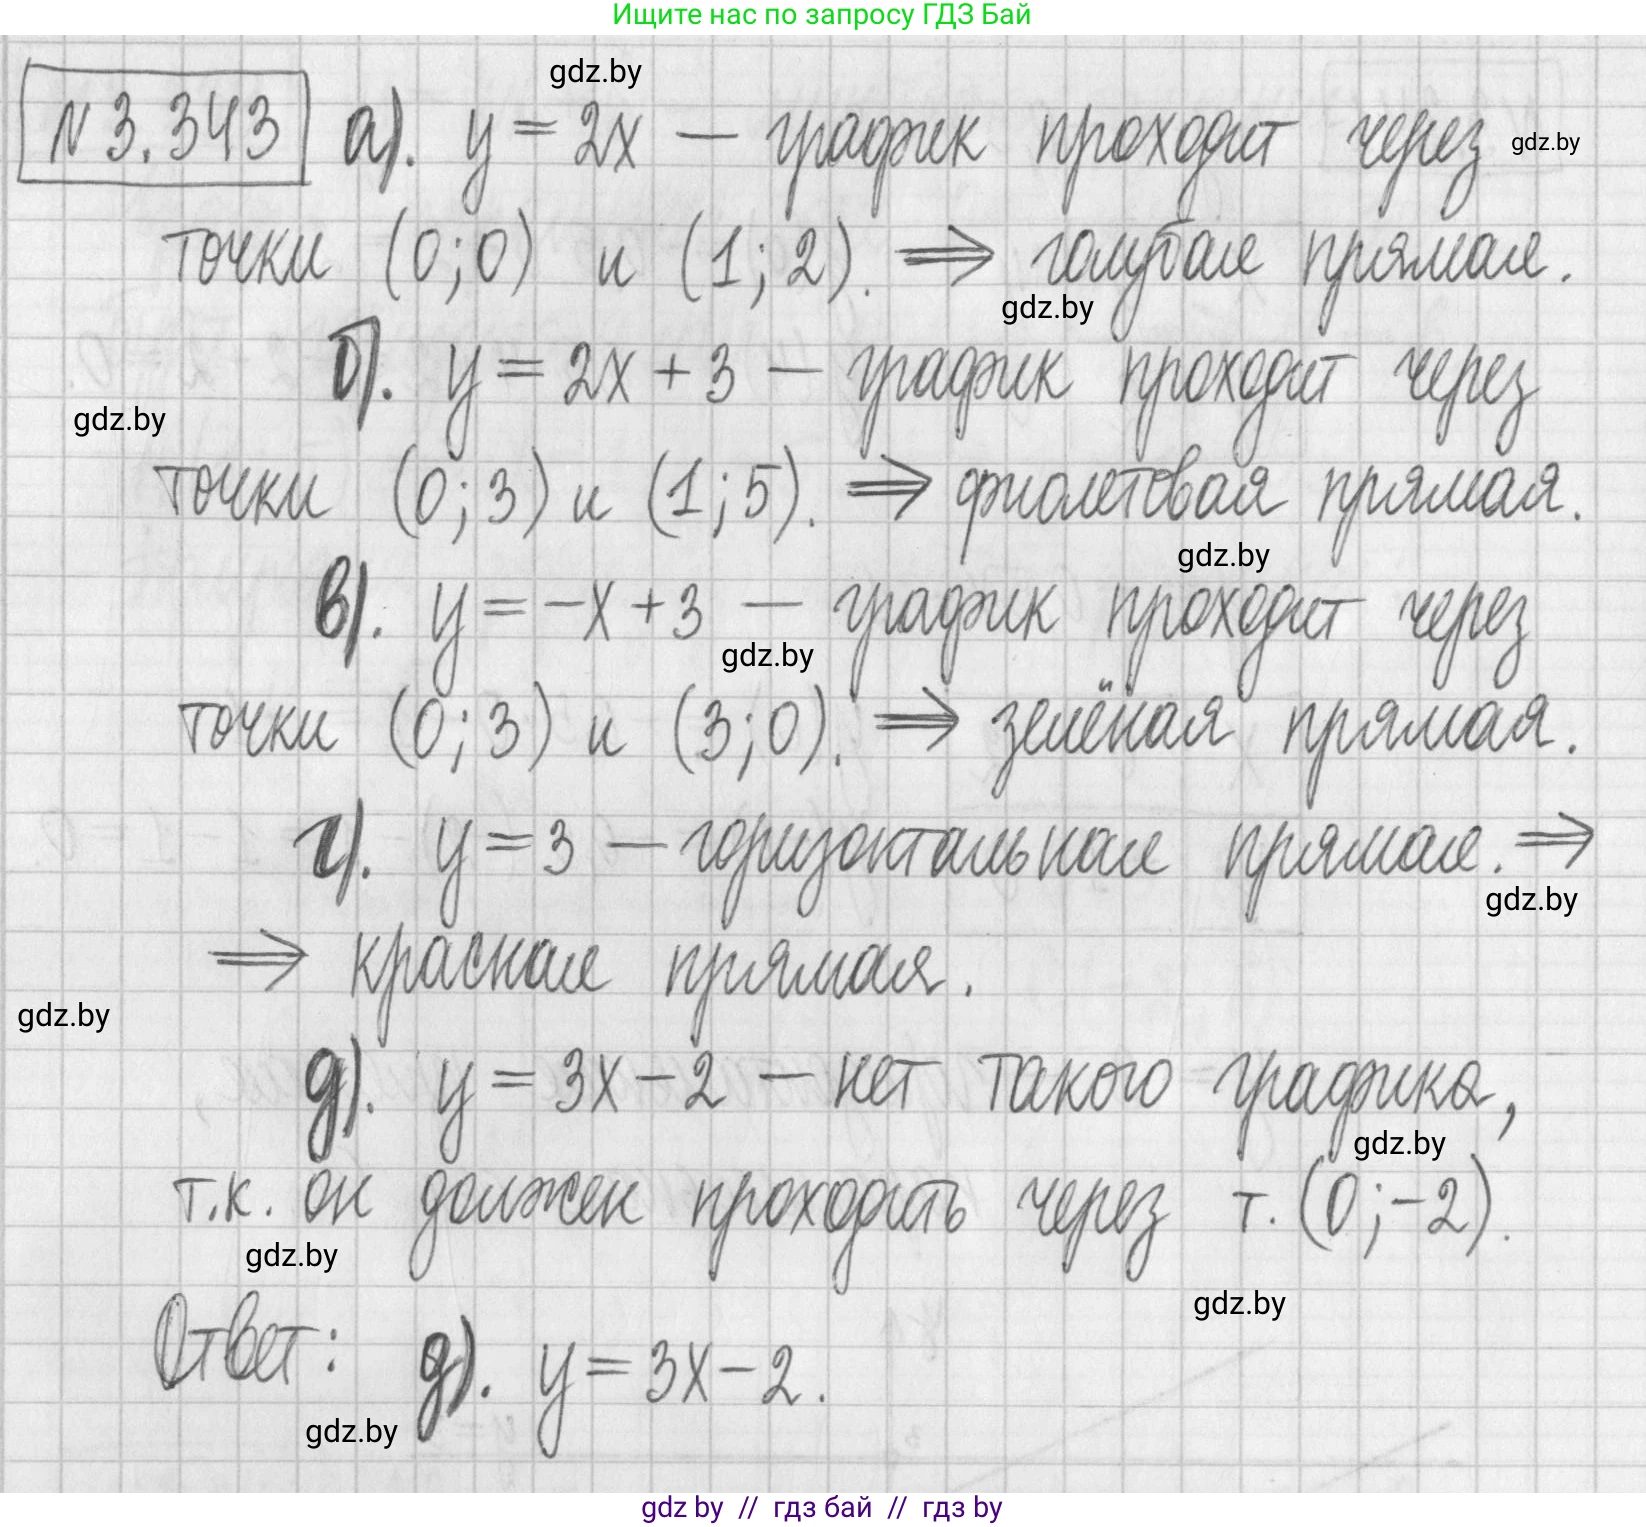 Ищите нас по запросу ГДЗ Бай
gdz.by
N 3.343 а). y = 2x — график проходит через gdz.by
точки (0;0) и (1;2). ⇒ голубая прямая.
gdz.by
б). y = 2x + 3 — график проходит через
gdz.by
точки (0;3) и (1;5). ⇒ фиолетовая прямая.
gdz.by
в). y = -x + 3 — график проходит через
gdz.by
точки (0;3) и (3;0). ⇒ зелёная прямая.
г). y = 3 — горизонтальная прямая. ⇒
gdz.by
⇒ красная прямая.
gdz.by
д). y = 3x - 2 — нет такого графика,
gdz.by
т.к. он должен проходить через т. (0;-2).
gdz.by
gdz.by
Ответ: д). y = 3x - 2.
gdz.by
gdz by // гдз бай // гдз by